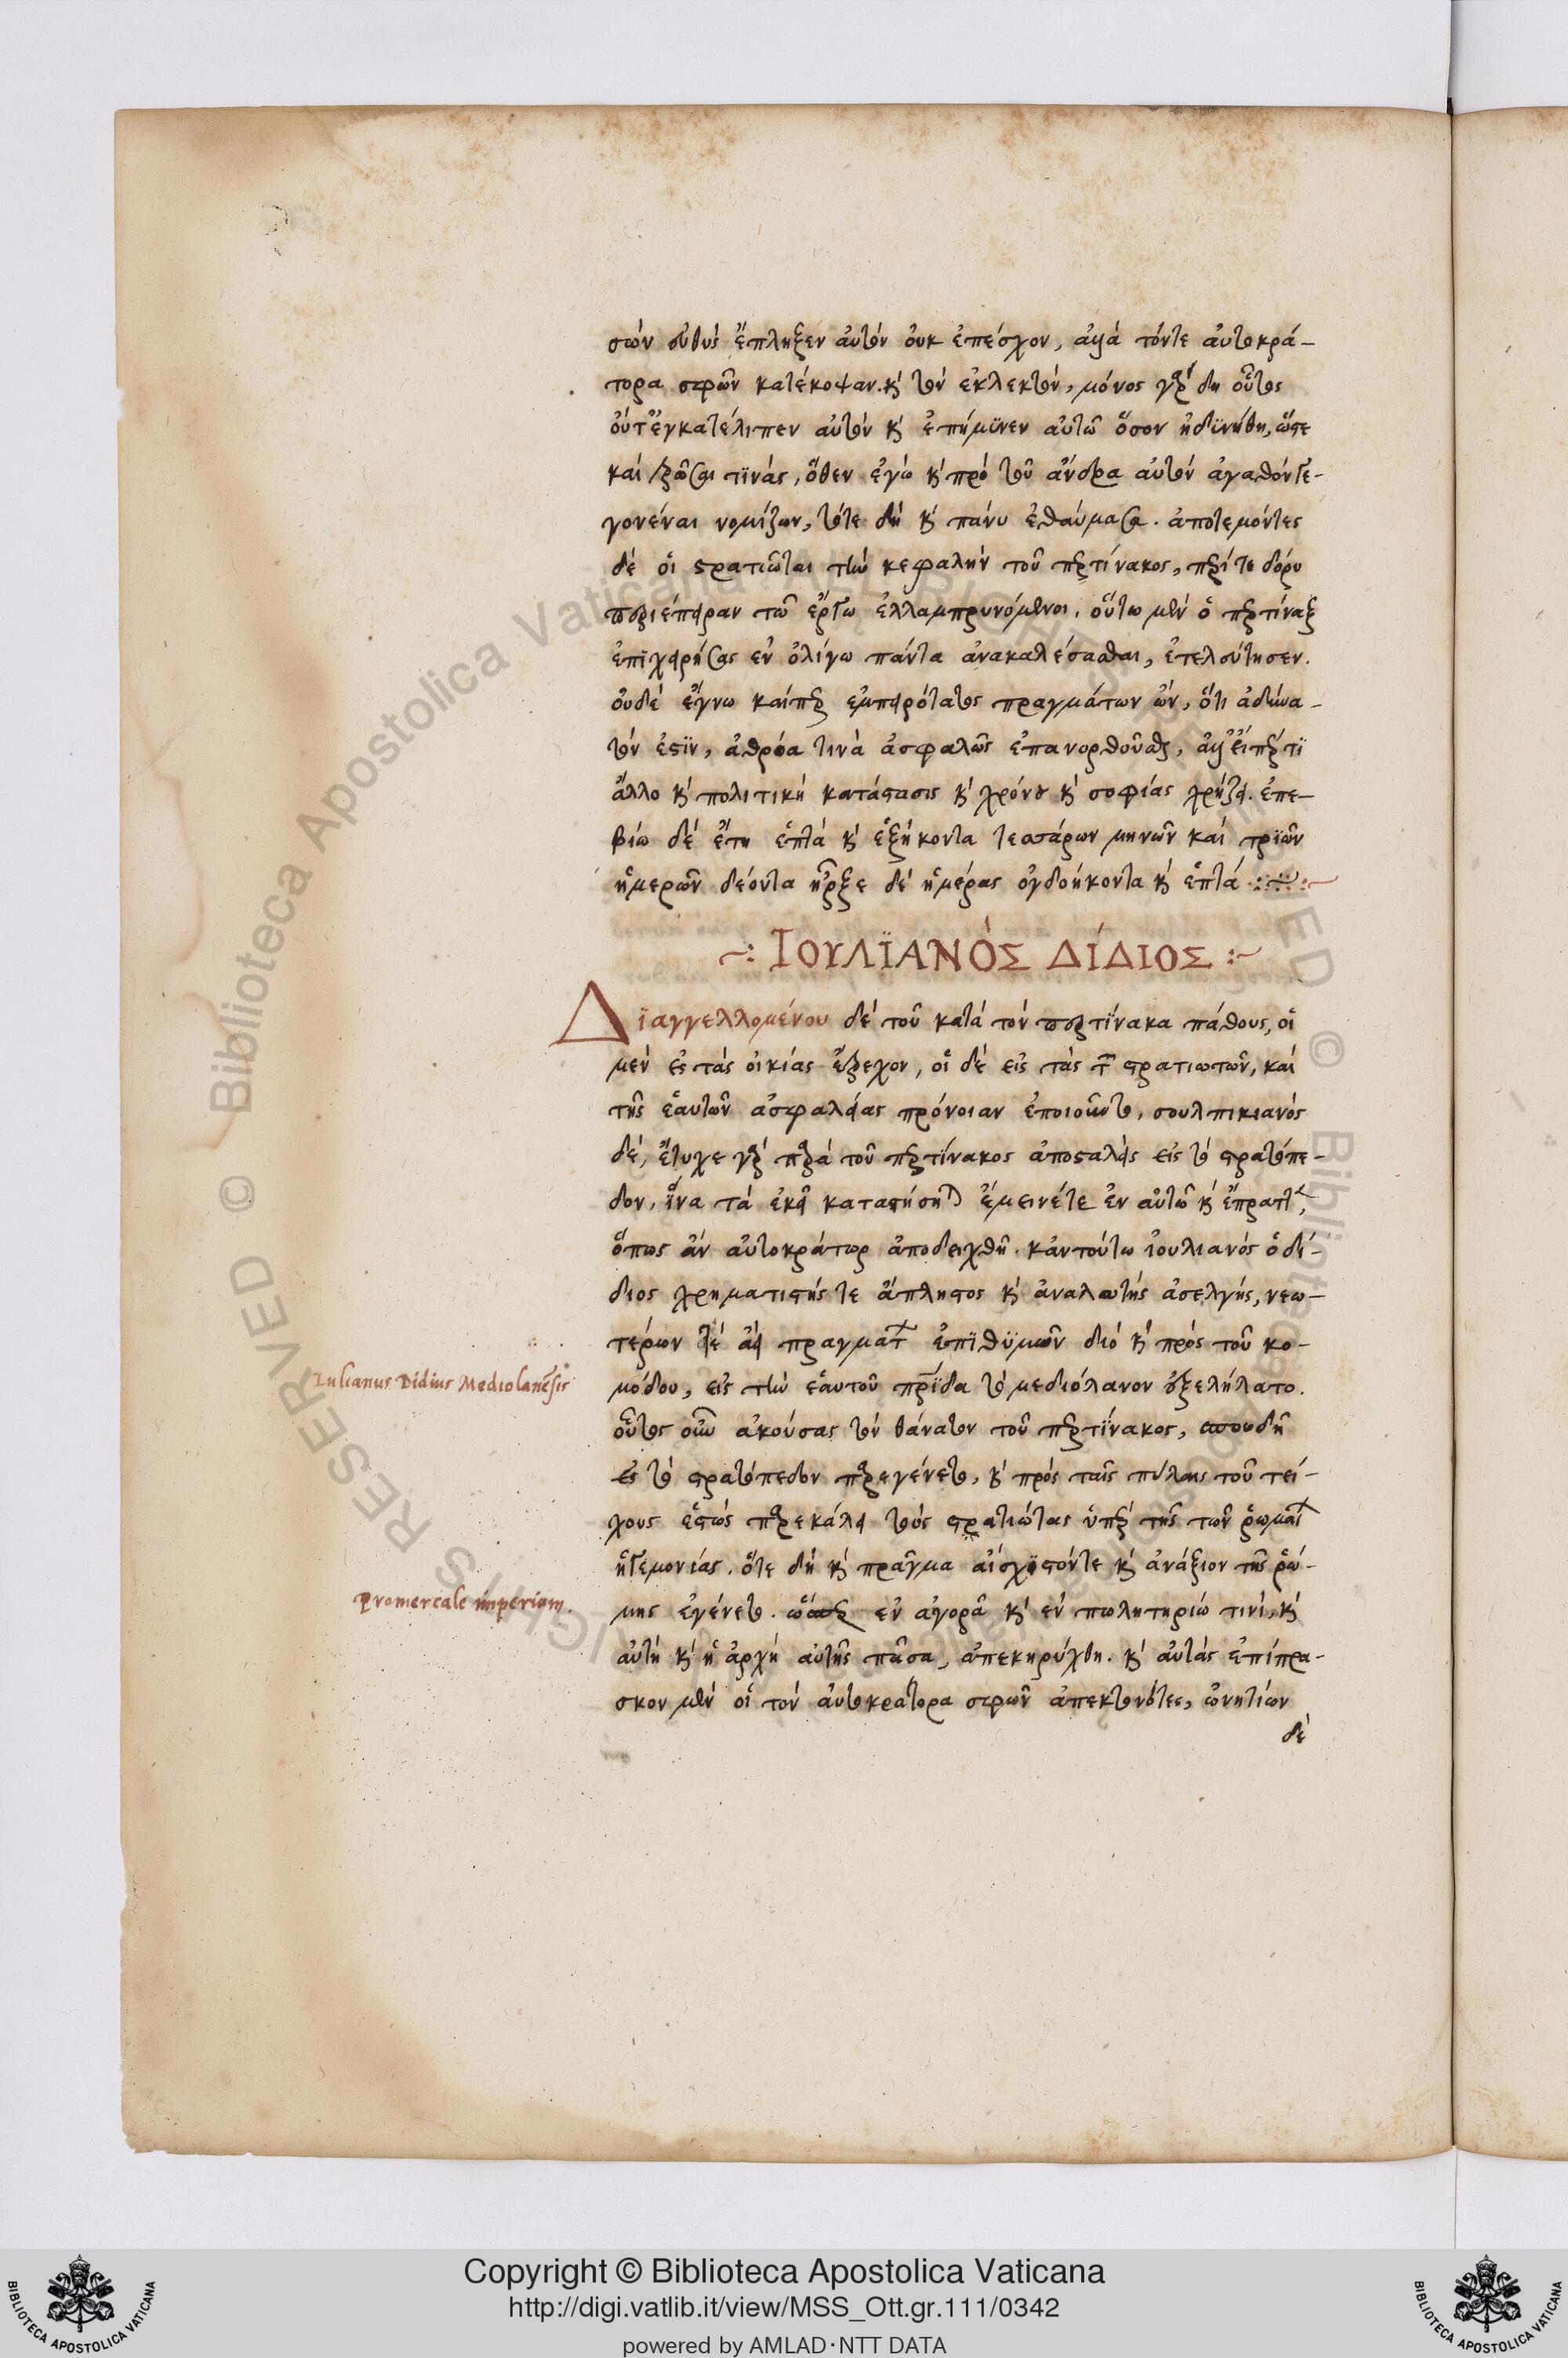 σών εὐθὺς ἔπληξεν αὐτὸν οὐκ ἐπέσχον, ἀλλὰ τόντε αὐτοκρά-
τορα σφῶν κατέκοψαν. καὶ τὸν ἐκλεκτὸν, μόνος γὰρ δη οὗτος
οὔτ' ἐγκατέλιπεν αὐτὸν καὶ ἐπήμϋνεν αὐτῶ ὅσον ἠδϋνήθη, ὥστε
καὶ τρῶσαι τϊνὰς, ὅθεν ἐγὼ καὶ πρὸ τοῦ ἄνδρα αὐτὸν ἀγαθόν γε-
γονέναι νομίζων, τότε δὴ καὶ πάνυ ἐθαύμασα. ἀποτεμόντες
δὲ οἱ στρατιῶται τὴν κεφαλὴν τοῦ περτίνακος, περί τε δόρυ
περιέπειραν τῶ ἔργω ἐλλαμπρυνόμενοι. οὕτω μὲν ὁ περτίναξ
ἐπϊχειρήσας ἐν ὀλίγω πάντα ἀνακαλέσασθαι, ἐτελεύτησεν.
οὐδὲ ἔγνω καίπερ ἐμπειρότατος πραγμάτων ὢν, ὅτι ἀδύνα-
τόν ἐστϊν, ἀθρόα τινὰ ἀσφαλῶς ἐπανορθοῦσθαι, ἀλλ' εἴπέρ τϊ
ἄλλο καὶ πολιτικὴ κατάστασις καὶ χρόνου καὶ σοφίας χρήζει. ἐπε-
βίω δὲ ἔτη ἑπτὰ καὶ ἑξήκοντα τεσσάρων μηνῶν καὶ τρϊῶν
ἡμερῶν δέοντα ἦρξε δὲ ἡμέρας ὀγδοήκοντα καὶ ἑπτὰ
ἸΟΥΛΪΑΝΌΣ ΔΊΔΙΟΣ
Δϊαγγελλομένου δὲ τοῦ κατὰ τὸν περτϊνακα πάθους, οἱ
μὲν ἐς τὰς οἰκίας ἔτρεχον, οἱ δὲ εἰς τὰς τῶν στρατιωτῶν, καὶ
τῆς ἑαυτῶν ἀσφαλείας πρόνοιαν ἐποιοῦντο, σουλπικιανὸς
δὲ, ἔτυχε γὰρ παρὰ τοῦ περτίνακος ἀποσταλεὶς εἰς τὸ στρατόπε-
δον, ἵνα τὰ ἐκεῖ καταστήσηται ἔμεινέτε ἐν αὐτῶ καὶ ἔπραττεν,
ὅπως ἂν αὐτοκράτωρ ἀποδειχθῆ. κἀντούτω ἰουλιανὸς ὁ δί-
διος χρηματιστής τε ἄπληστος καὶ ἀναλωτὴς ἀσελγὴς, νεω-
τέρων τὲ ἀεὶ πραγμάτων ἐπϊθϋμῶν διὸ καὶ πρὸς τοῦ κο-
μόδου, εἰς τὴν ἑαυτοῦ πρΐδα τὸ μεδιόλανον ἐξελήλατο.
οὗτος οὖν ἀκούσας τὸν θάνατον τοῦ περτϊνακος, σπουδῆ
ἐς τὸ στρατόπεδον παρεγένετο, καὶ πρὸς ταῖς πύλαις τοῦ τεί-
χους ἑστὼς παρεκάλει τοὺς στρατιώτας ὑπὲρ τῆς τῶν ῥωμαίων
ἡγεμονίας. ὅτε δὴ καὶ πρᾶγμα αἴσχϊστόντε καὶ ἀνάξιον τῆς ῥώ-
μης ἐγένετο. ὥσπερ ἐν ἀγορᾶ καὶ ἐν πωλητηρίω τινὶ, καὶ
αὐτὴ καὶ ἡ ἀρχὴ αὐτῆς πᾶσα, ἀπεκηρύχθη. καὶ αὐτὰς ἐπίπρα-
σκον μὲν οἱ τὸν αὐτοκράτορα σφῶν ἀπεκτονότες, ὠνητίων
δὲ
Iulianus Didius Mediolanẽsis
Promercale imperium.
Copyright © Biblioteca Apostolica Vaticana
http://digi.vatlib.it/view/MSS_Ott.gr.111/0342
powered by AMLAD·NTT DATA
BIBLIOTECA APOSTOLICA VATICANA
BIBLIOTECA APOSTOLICA VATICANA